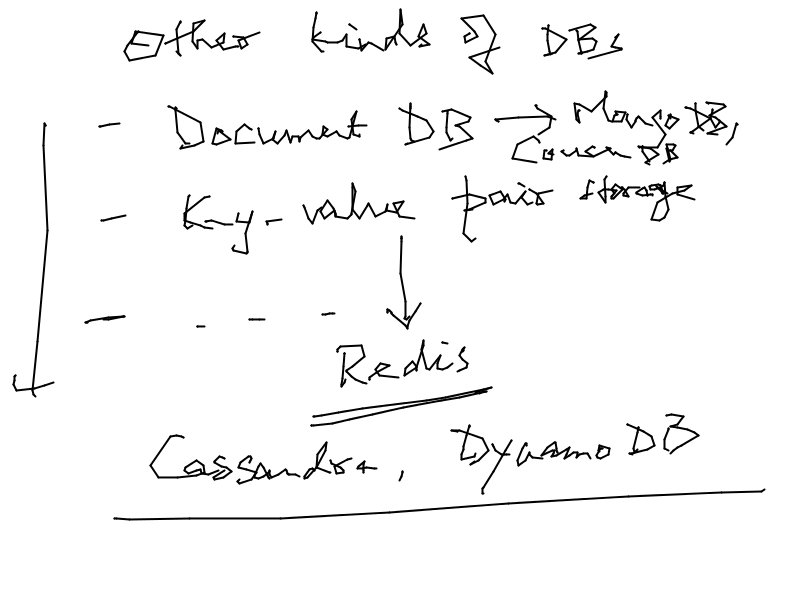 Other kinds of DBs
- Document DB → MongoDB,
CouchDB
- Key-value pair storage
- - - -
Redis
Cassandra, DynamoDB